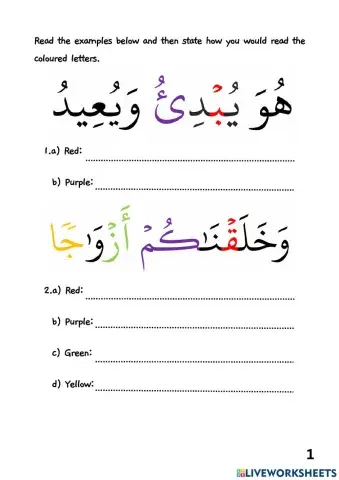 Read the examples below and then state how you would read the
coloured letters.
هُوَ يُبْدِئُ وَيُعِيدُ
1.a) Red:
b) Purple:
وَخَلَقْنَاكُمْ أَزْوَاجًا
2.a) Red:
b) Purple:
c) Green:
d) Yellow:
1
LIVEWORKSHEETS